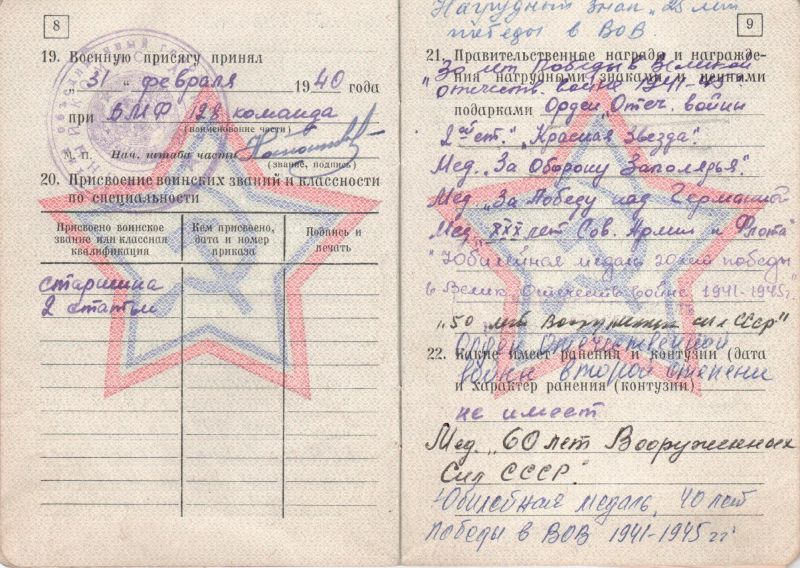 8
19. Военную присягу принял
"31" февраля 1940 года
при ВМФ 12й команда
(наименование части)
М. п. Нач. штаба части
(звание, подпись)
20. Присвоение воинских званий и классности
по специальности
Присвоено воинское звание или классная квалификация
Кем присвоено, дата и номер приказа
Подпись и печать
старшина
2 статьи
Нагрудный знак "25 лет
победы в ВОВ.
9
21. Правительственные награды и награжде-
ния нагрудными знаками и ценными
подарками
"30 лет Победы в Великой
отечеств. войне 1941-45"
Орден "Отеч. войны
2й ст." "Красная Звезда".
Мед. "За Оборону Заполярья".
Мед. "За Победу над Германией
Мед. "XXX лет Сов. Армии и Флота"
"Юбилейная медаль 20 лет победы
в Велик. Отечеств войне 1941-1945г.
"50 лет Вооруженных сил СССР"
Орден Отечественной
войны второй степени
22. Какие имеет ранения и контузии (дата
и характер ранения (контузии)
не имеет
Мед. "60 лет Вооруженных
Сил СССР".
Юбилейная медаль, 40 лет
Победы в ВОВ 1941-1945гг